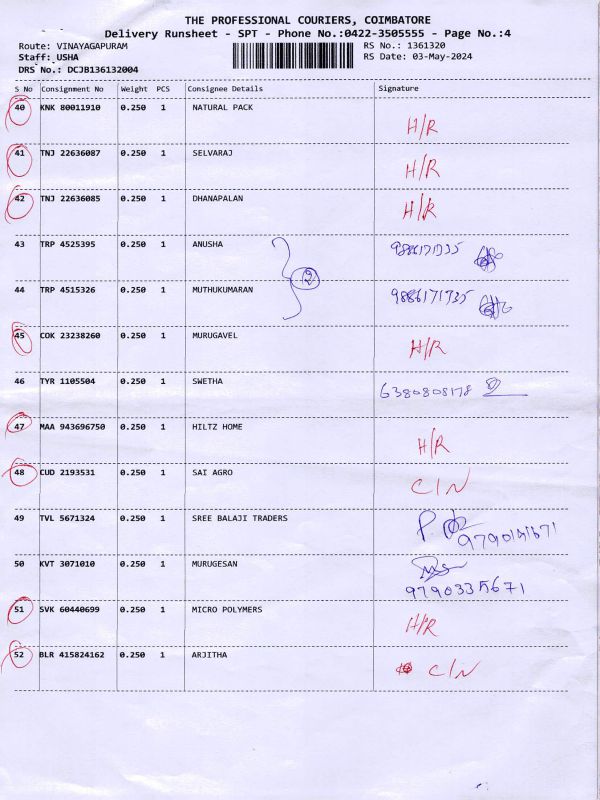 THE PROFESSIONAL COURIERS, COIMBATORE
Delivery Runsheet - SPT - Phone No.:0422-3505555 - Page No.:4
Route: VINAYAGAPURAM RS No.: 1361320
Staff: USHA RS Date: 03-May-2024
DRS No.: DCJB136132004
S No Consignment No Weight PCS Consignee Details Signature
40 KNK 80011910 0.250 1 NATURAL PACK
H/R
41 TNJ 22636087 0.250 1 SELVARAJ
H/R
42 TNJ 22636085 0.250 1 DHANAPALAN
H/R
43 TRP 4525395 0.250 1 ANUSHA 9886171735
2
44 TRP 4515326 0.250 1 MUTHUKUMARAN 9886171735
45 COK 23238260 0.250 1 MURUGAVEL
H/R
46 TYR 1105504 0.250 1 SWETHA
6380808178
47 MAA 943696750 0.250 1 HILTZ HOME
H/R
48 CUD 2193531 0.250 1 SAI AGRO
C/N
49 TVL 5671324 0.250 1 SREE BALAJI TRADERS
50 KVT 3071010 0.250 1 MURUGESAN
9790335671
51 SVK 60440699 0.250 1 MICRO POLYMERS
H/R
52 BLR 415824162 0.250 1 ARJITHA
C/N